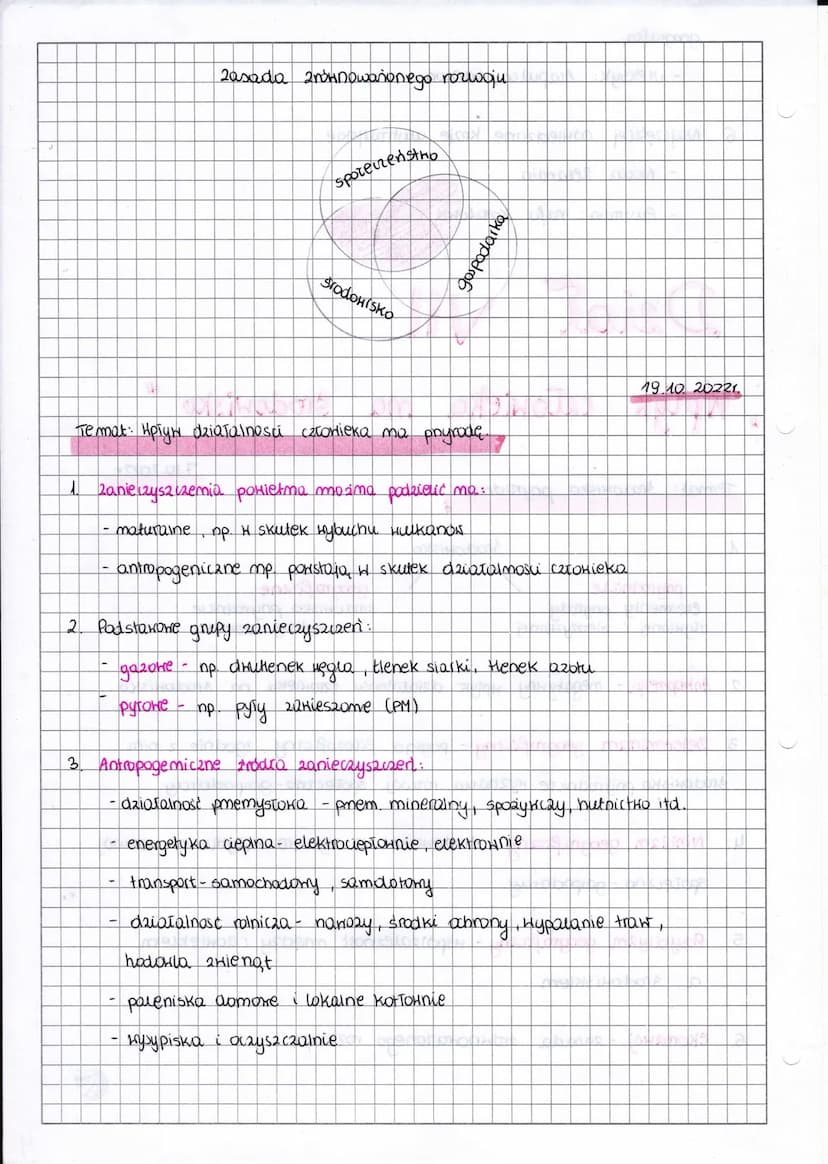 zasada zrównoważonego rozwoju
społeczeństwo
gospodarka
środowisko
19.10.2022r.
Temat: Wpływ działalności człowieka na przyrodę.
1. Zanieczyszczenia powietrza można podzielić na:
- naturalne, np. w skutek wybuchu wulkanów
- antropogeniczne np. powstają w skutek działalności człowieka
2. Podstawowe grupy zanieczyszczeń:
- gazowe - np. dwutlenek węgla, tlenek siarki, tlenek azotu
- pyłowe - np. pyły zawieszone (PM)
3. Antropogeniczne źródła zanieczyszczeń:
- działalność przemysłowa - przem. mineralny, spożywczy, hutnictwo itd.
- energetyka cieplna - elektrociepłownie, elektrownie
- transport - samochodowy, samolotowy
- działalność rolnicza - nawozy, środki ochrony, wypalanie traw,
hodowla zwierząt
- paleniska domowe i lokalne kotłownie
- wysypiska i oczyszczalnie